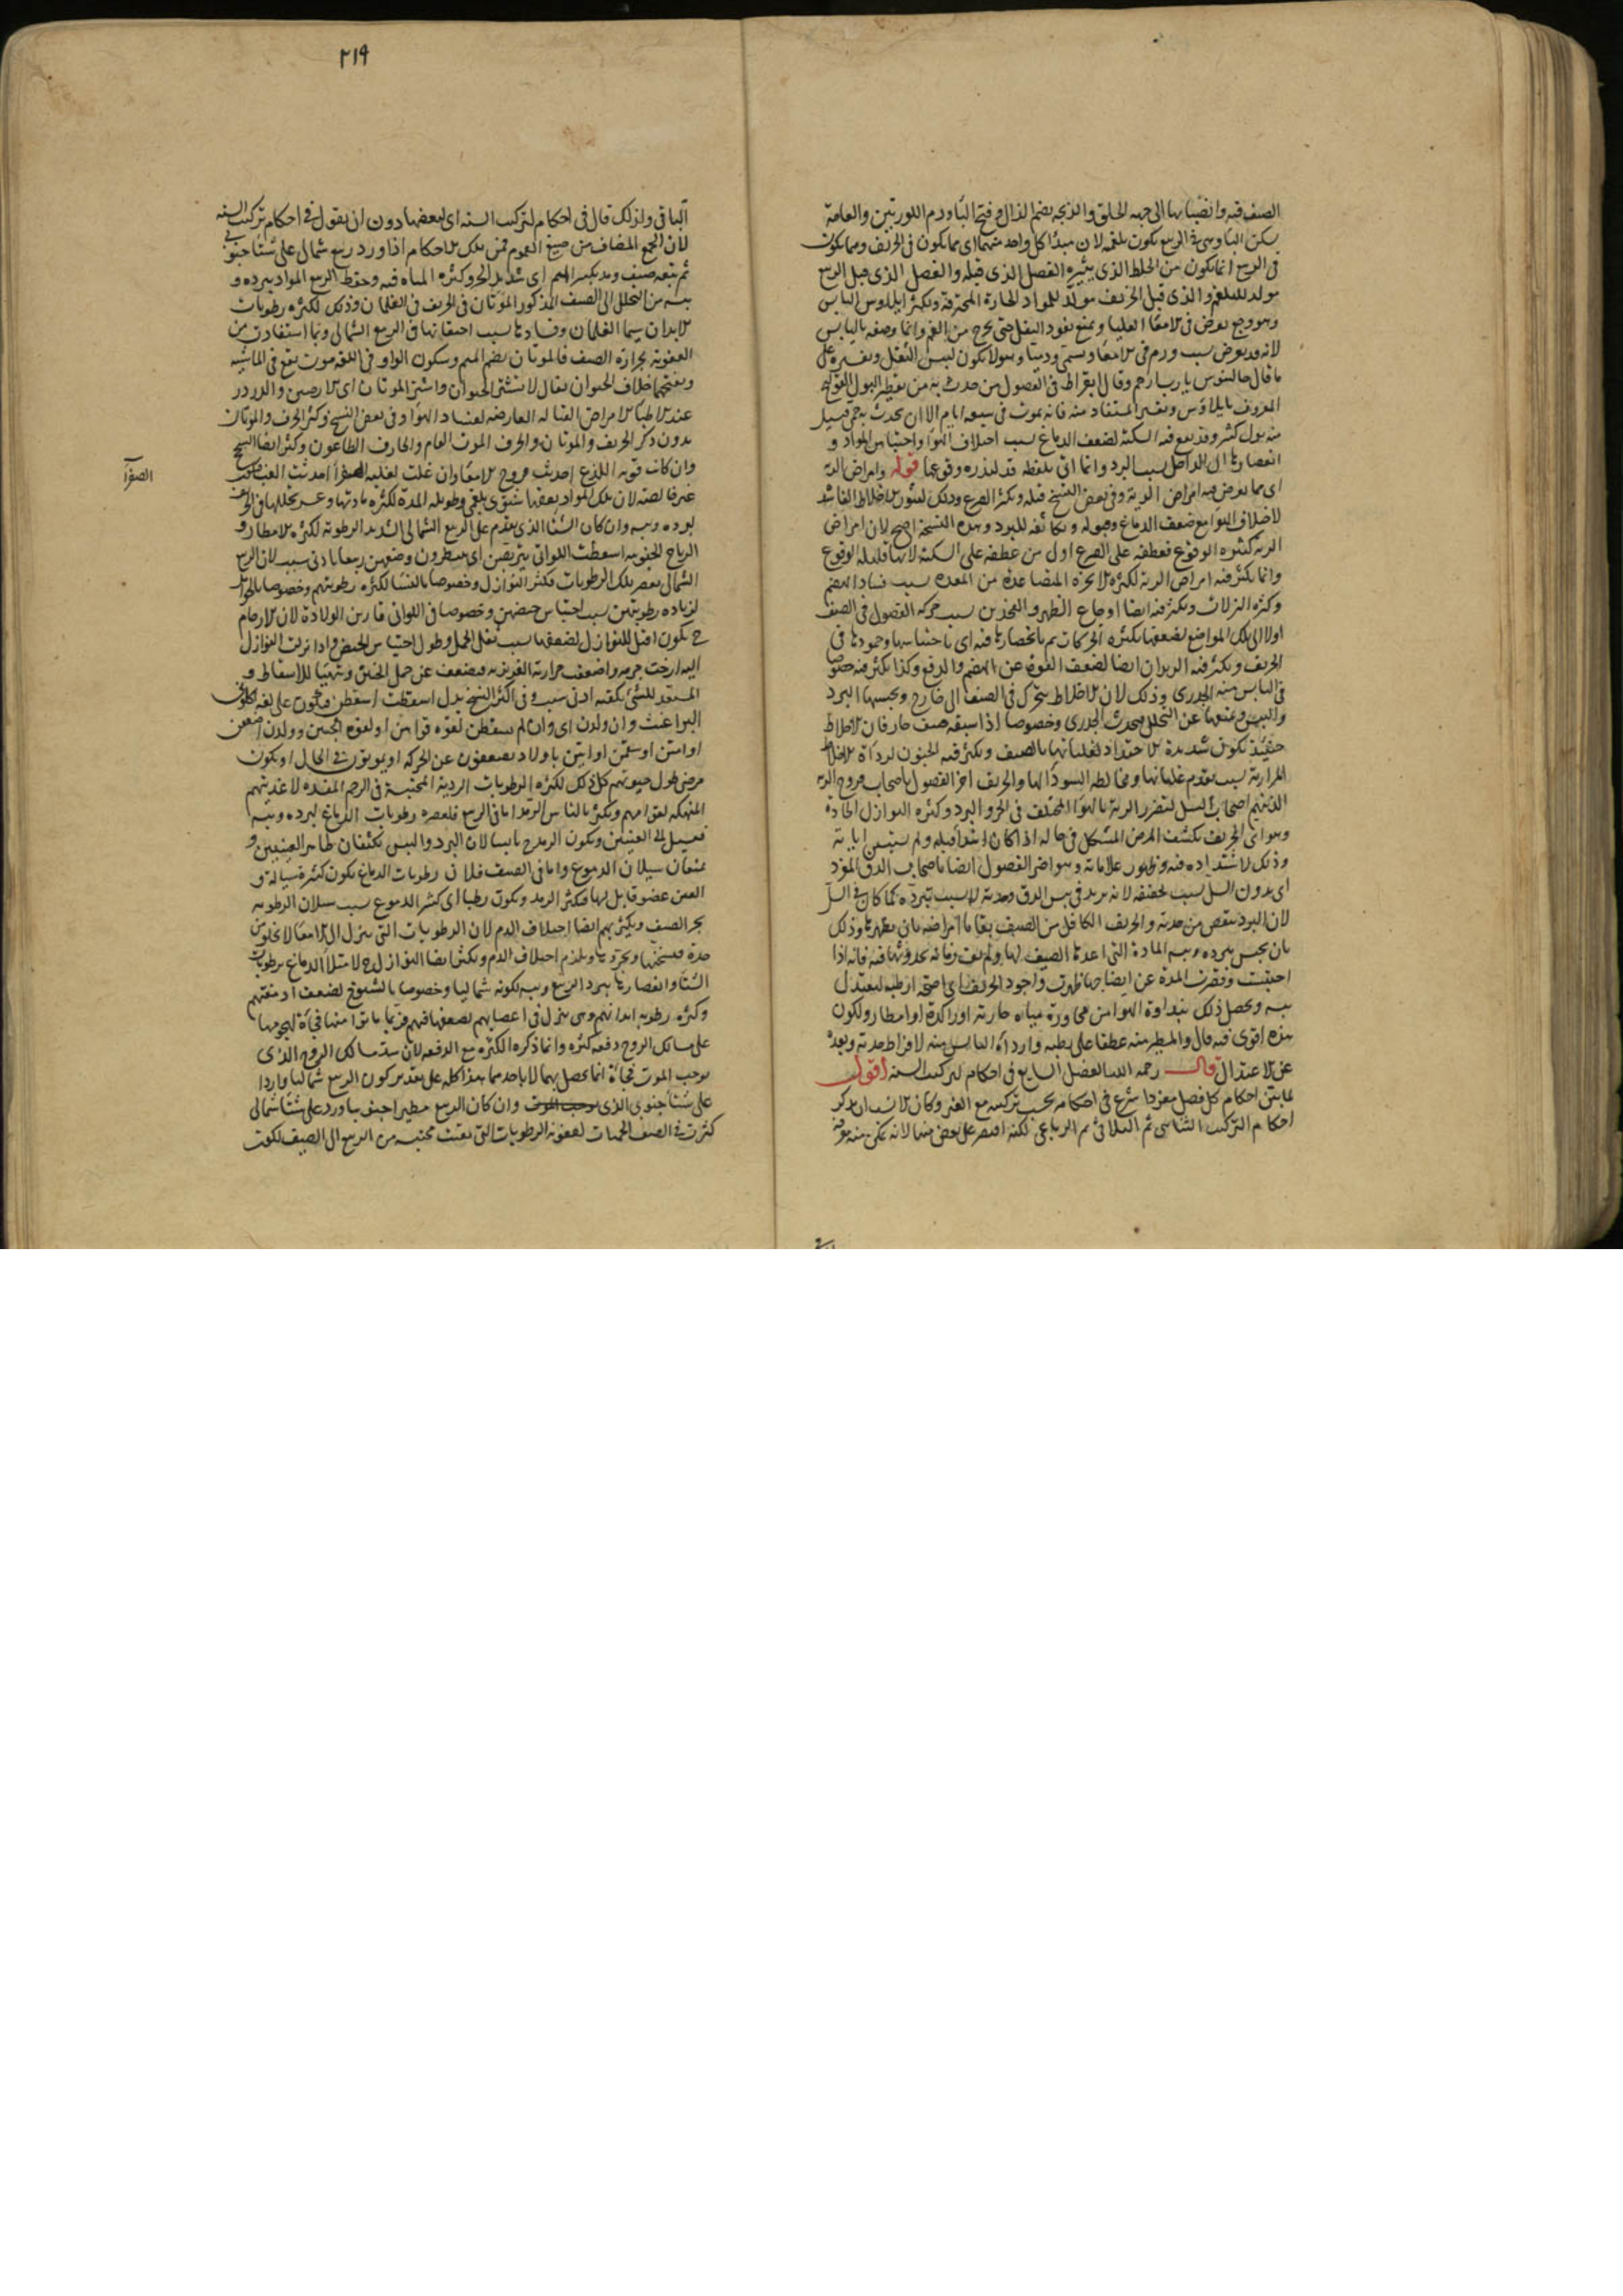 الصيف فيه وانصبابها الى جهة الحلق والذبحة بضم الذال وفتح الباء ورم اللوزتين والعامة
يسكن الباء وهي في الربيع تكون بلغمية لان مبدأ كل واحد منهما اي مما يكون في الخريف ومما يكون
في الربيع انما يكون من الخلط الذي يثيره الفصل الذي قبله والفصل الذي قبل الربيع
مولد للبلغم والذي قبل الخريف مولد للمواد الحارة المحترقة ويكثر ايلاوس اليابس
وهو وجع يعرض في الامعاء العليا ويمنع نفوذ الثفل حتى يخرج من الفم وانما وصفه باليابس
لانه قد يعرض بسبب ورم في الامعاء
ما قال جالينوس يا رب ارحم وقال ابقراط في الفصول من حدث به من تقطير البول القولنج
المعروف بايلاوس المستفاد منه فانه يموت في سبعة ايام الا ان يحدث به حمى فيسيل
منه بول كثير وقد يقع فيه السكتة لضعف الدماغ بسبب اختلاف الهواء واحتباس المواد و
انعصارها الى الداخل بسبب البرد وانما اتى بلفظة قد لندرة وقوعها قوله وامراض الرئة
اي مما يعرض فيه امراض الرئة وفي بعض النسخ قبله ويكثر الصرع وذلك لثوران الاخلاط الفاسدة
لاختلاف الهواء مع ضعف الدماغ وقبوله وتكاثفه للبرد وهذه النسخة اصح لان امراض
الرئة كثيرة الوقوع فعطفه على الصرع اولى من عطفه على السكتة لانها قليلة الوقوع
وانما يكثر فيه امراض الرئة لكثرة الابخرة المتصاعدة من المعدة بسبب فساد الهضم
وكثرة النزلات ويكثر فيه ايضا اوجاع الظهر والفخذين بسبب حركة الفضول في الصيف
اولا الى تلك المواضع لضعفها بكثرة الحركات ثم بانحصارها فيه اي باحتباسها وجمودها في
الخريف ويكثر فيه الديدان ايضا لضعف القوة عن الهضم والدفع وكذا يكثر فيه خصوصا
في اليابس منه الجدري وذلك لان الاخلاط يتحرك في الصيف الى خارج ويحبسها البرد
واليبس ويمنعها عن التحلل فيحدث الجدري وخصوصا اذا سبقه صيف حار فان الاخلاط
حينئذ تكون شديدة الاحتداد لغليانها بالصيف ويكثر فيه الجنون لرداءة الاخلاط
المرارية بسبب تقدم غليانها ومخالطة السوداء لها والخريف اضر الفصول باصحاب قروح الرئة
الذين هم اصحاب السل لتضرر الرئة بالهواء المختلف في الحر والبرد وكثرة النوازل الحادة
وهو اي الخريف يكشف المرض المشكل في حاله اذا كان ابتدأ قبله ولم يستبن اياته
وذلك لاشتداده فيه وظهور علاماته وهو اضر الفصول ايضا باصحاب الدق المفرد
اي بدون السل بسبب تجفيفه لانه يزيد في يبس الدق وحدته لا بسبب تبريده كما كان في السل
لان البرد ينقص من حدته والخريف الكافل من الصيف بقايا امراضه بان يظهرها وذلك
بان يحبس ببرده ويبسه المادة التي اعدها الصيف لها
احتبست وقصرت المدة عن ايضاحها ظهرت واجود الخريف اي اصحه ارطبه ليعتدل
يبسه ويحصل ذلك بنداوة الهواء من مجاورة مياه جارية او راكدة او امطار ولكون
هذه اقوى فيه قال والمطير منه عطفا على رطبه واردأه اليابس منه لافراط حدته وبعده
عن الاعتدال قال رحمه الله الفصل السابع في احكام تركيب السنة اقول
لما بين احكام كل فصل مفردا شرع في احكامه بحسب تركيبه مع الغير وكان الانسب ان يذكر
احكام التركيب الثنائي ثم الثلاثي ثم الرباعي لكنه اقتصر على بعض منها لانه يمكن منه معرفة
٢١٩
الباقي ولذلك قال في احكام لتركيب السنة اي لبعضها دون ان يقول في احكام تركيب السنة
لان الجمع المضاف من صيغ العموم فمن تلك الاحكام اذا ورد ربيع شمالي على شتاء جنوبي
ثم تبعه صيف ومد بكسر الميم اي شديد الحر وكثرة المياه فيه وحفظ الربيع المواد ببرده و
يبسه من التحلل الى الصيف المذكور الموتان في الخريف في الغلمان وذلك لكثرة رطوبات
الابدان سيما الغلمان وفسادها بسبب احتقانها في الربيع الشمالي وبما استفادت من
العفونة بحرارة الصيف فالموتان بضم الميم وسكون الواو في اللغة موت يقع في الماشية
وبفتحهما خلاف الحيوان يقال لا تشتر الحيوان واشتر الموتان اي الارضين والدور
عند الاطباء الامراض القتالة العارضة لفساد الهواء وفي بعض النسخ وكثر الخرف والموتان
بدون ذكر الخريف والموتان والخرف الموت العام والجارف الطاعون وكثر ايضا السحج
وان كانت قوية اللذع احدثت قروح الامعاء وان غلت لغلبة الصفراء احدثت الغب
غير خالصة لان تلك المواد بعضها شتوي بلغمي وطويلة المدة لكثرة مادتها وعسر تحللها في الخريف
لبرده ويبسه وان كان الشتاء الذي يتقدم على الربيع الشمالي الشديد الرطوبة لكثرة الامطار و
الرياح الجنوبية اسقطت اللواتي يتربصن اي ينتظرون وضعهن ربيعا بادنى سبب لان الربيع
الشمالي يعصر تلك الرطوبات فيكثر النوازل وخصوصا بالنساء لكثرة رطوبتهم وخصوصا بالحوامل
لزيادة رطوبتهن بسبب احتباس حيضهن وخصوصا في اللواتي قاربن الولادة لان الارحام
ح تكون اقبل للنوازل لضعفها بسبب ثقل الحمل وطول احتباس الحيض واذا نزلت النوازل
اليه ارخت جرمه واضعفت حرارته الغريزية فيضعف عن حمل الجنين ويتهيأ للاسقاط و
المستعد للشيء يكفيه ادنى سبب وفي اكثر النسخ بدل اسقطت اسقطن فيكون على لغة اكلوني
البراغيث وان ولدن اي وان لم يسقطن لقوة قواهن او لقوة الجنين وولدن اضعفن
او امتن او سقمن او اتين باولاد يضعفون عن الحركة او يموتون في الحال او يكون
مرضى طول حيوتهم كل ذلك لكثرة الرطوبات الردية المحتبسة في الرحم المفسدة لاغذيتهم
المنهكة لقواهم ويكثر بالناس الرمد اما في الربيع فلعصره رطوبات الدماغ لبرده ويبسه
فيسيل الى العينين ويكون الرمد ح يابسا لان البرد واليبس يكثفان ظاهر العينين و
يمنعان سيلان الدموع واما في الصيف فلان رطوبات الدماغ تكون كثيرة سيالة و
العين عضو قابل لها فيكثر الرمد ويكون رطبا اي كثير الدموع بسبب سيلان الرطوبة
بحر الصيف ويكثر بهم ايضا اختلاف الدم لان الرطوبات التي تنزل الى الامعاء لا تخلو من
حدة فيسحجها ويجردها ويلزم اختلاف الدم ويكثر ايضا النوازل ح لامتلاء الدماغ برطوبات
الشتاء وانعصارها ببرد الربيع ويبسه لكونه شماليا وخصوصا بالشيوخ لضعف ادمغتهم
وكثرة رطوبة ابدانهم وهي ينزل في اعصابهم لضعفها فيهم فربما ماتوا منها فجأة لهجومها
على مسالك الروح دفعة كثيرة وانما ذكره الكثرة مع الدفعة لان سد مسالك الروح الذي
يوجب الموت فجأة انما يحصل بهما لا باحدهما هذا كله على تقدير كون الربيع شماليا واردا
على شتاء جنوبي الذي يوجب الموت وان كان الربيع مطيرا جنوبيا ورد على شتاء شمالي
كثرت في الصيف الحميات لعفونة الرطوبات التي بقيت محتبسة من الربيع الى الصيف
الصفرآ